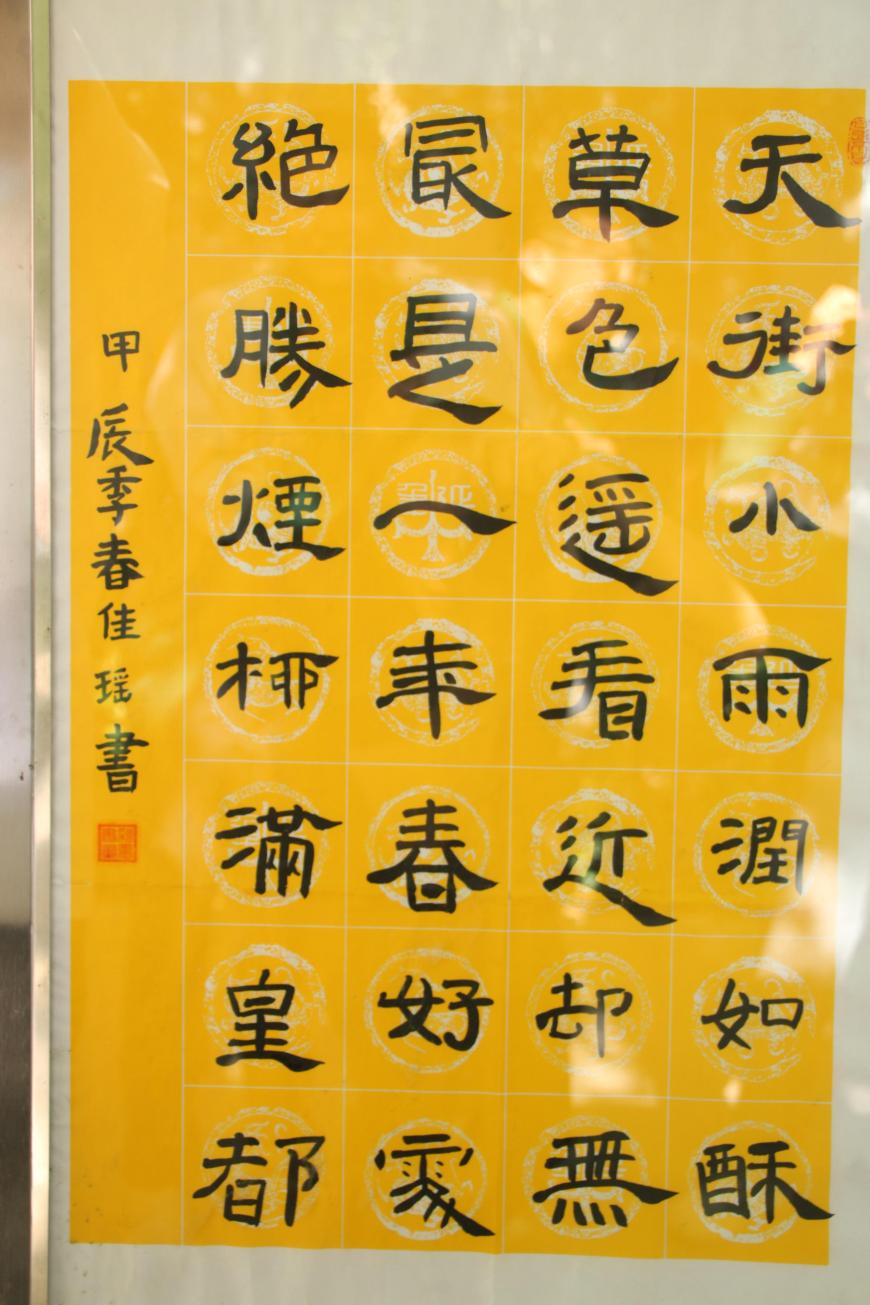 天街小雨潤如酥
草色遥看近却無
最是一年春好處
絶勝煙柳滿皇都
甲辰季春佳瑶書